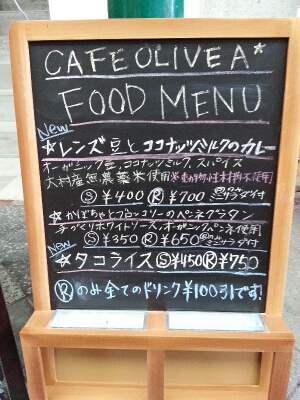 CAFE OLIVE A*
FOOD MENU
New
★レンズ豆とココナッツミルクのカレー
オーガニック豆、ココナッツミルク、スパイス
大村産無農薬米使用※動物性材料不使用
Ⓢ¥400 Ⓡ¥700 サラダ付
☆かぼちゃとブロッコリーのペンネグラタン
手づくりホワイトソース、オーガニックペンネ使用
Ⓢ¥350 Ⓡ¥650 サラダ付
New
☆タコライス Ⓢ¥450 Ⓡ¥750
Ⓡのみ全てのドリンク¥100引です!